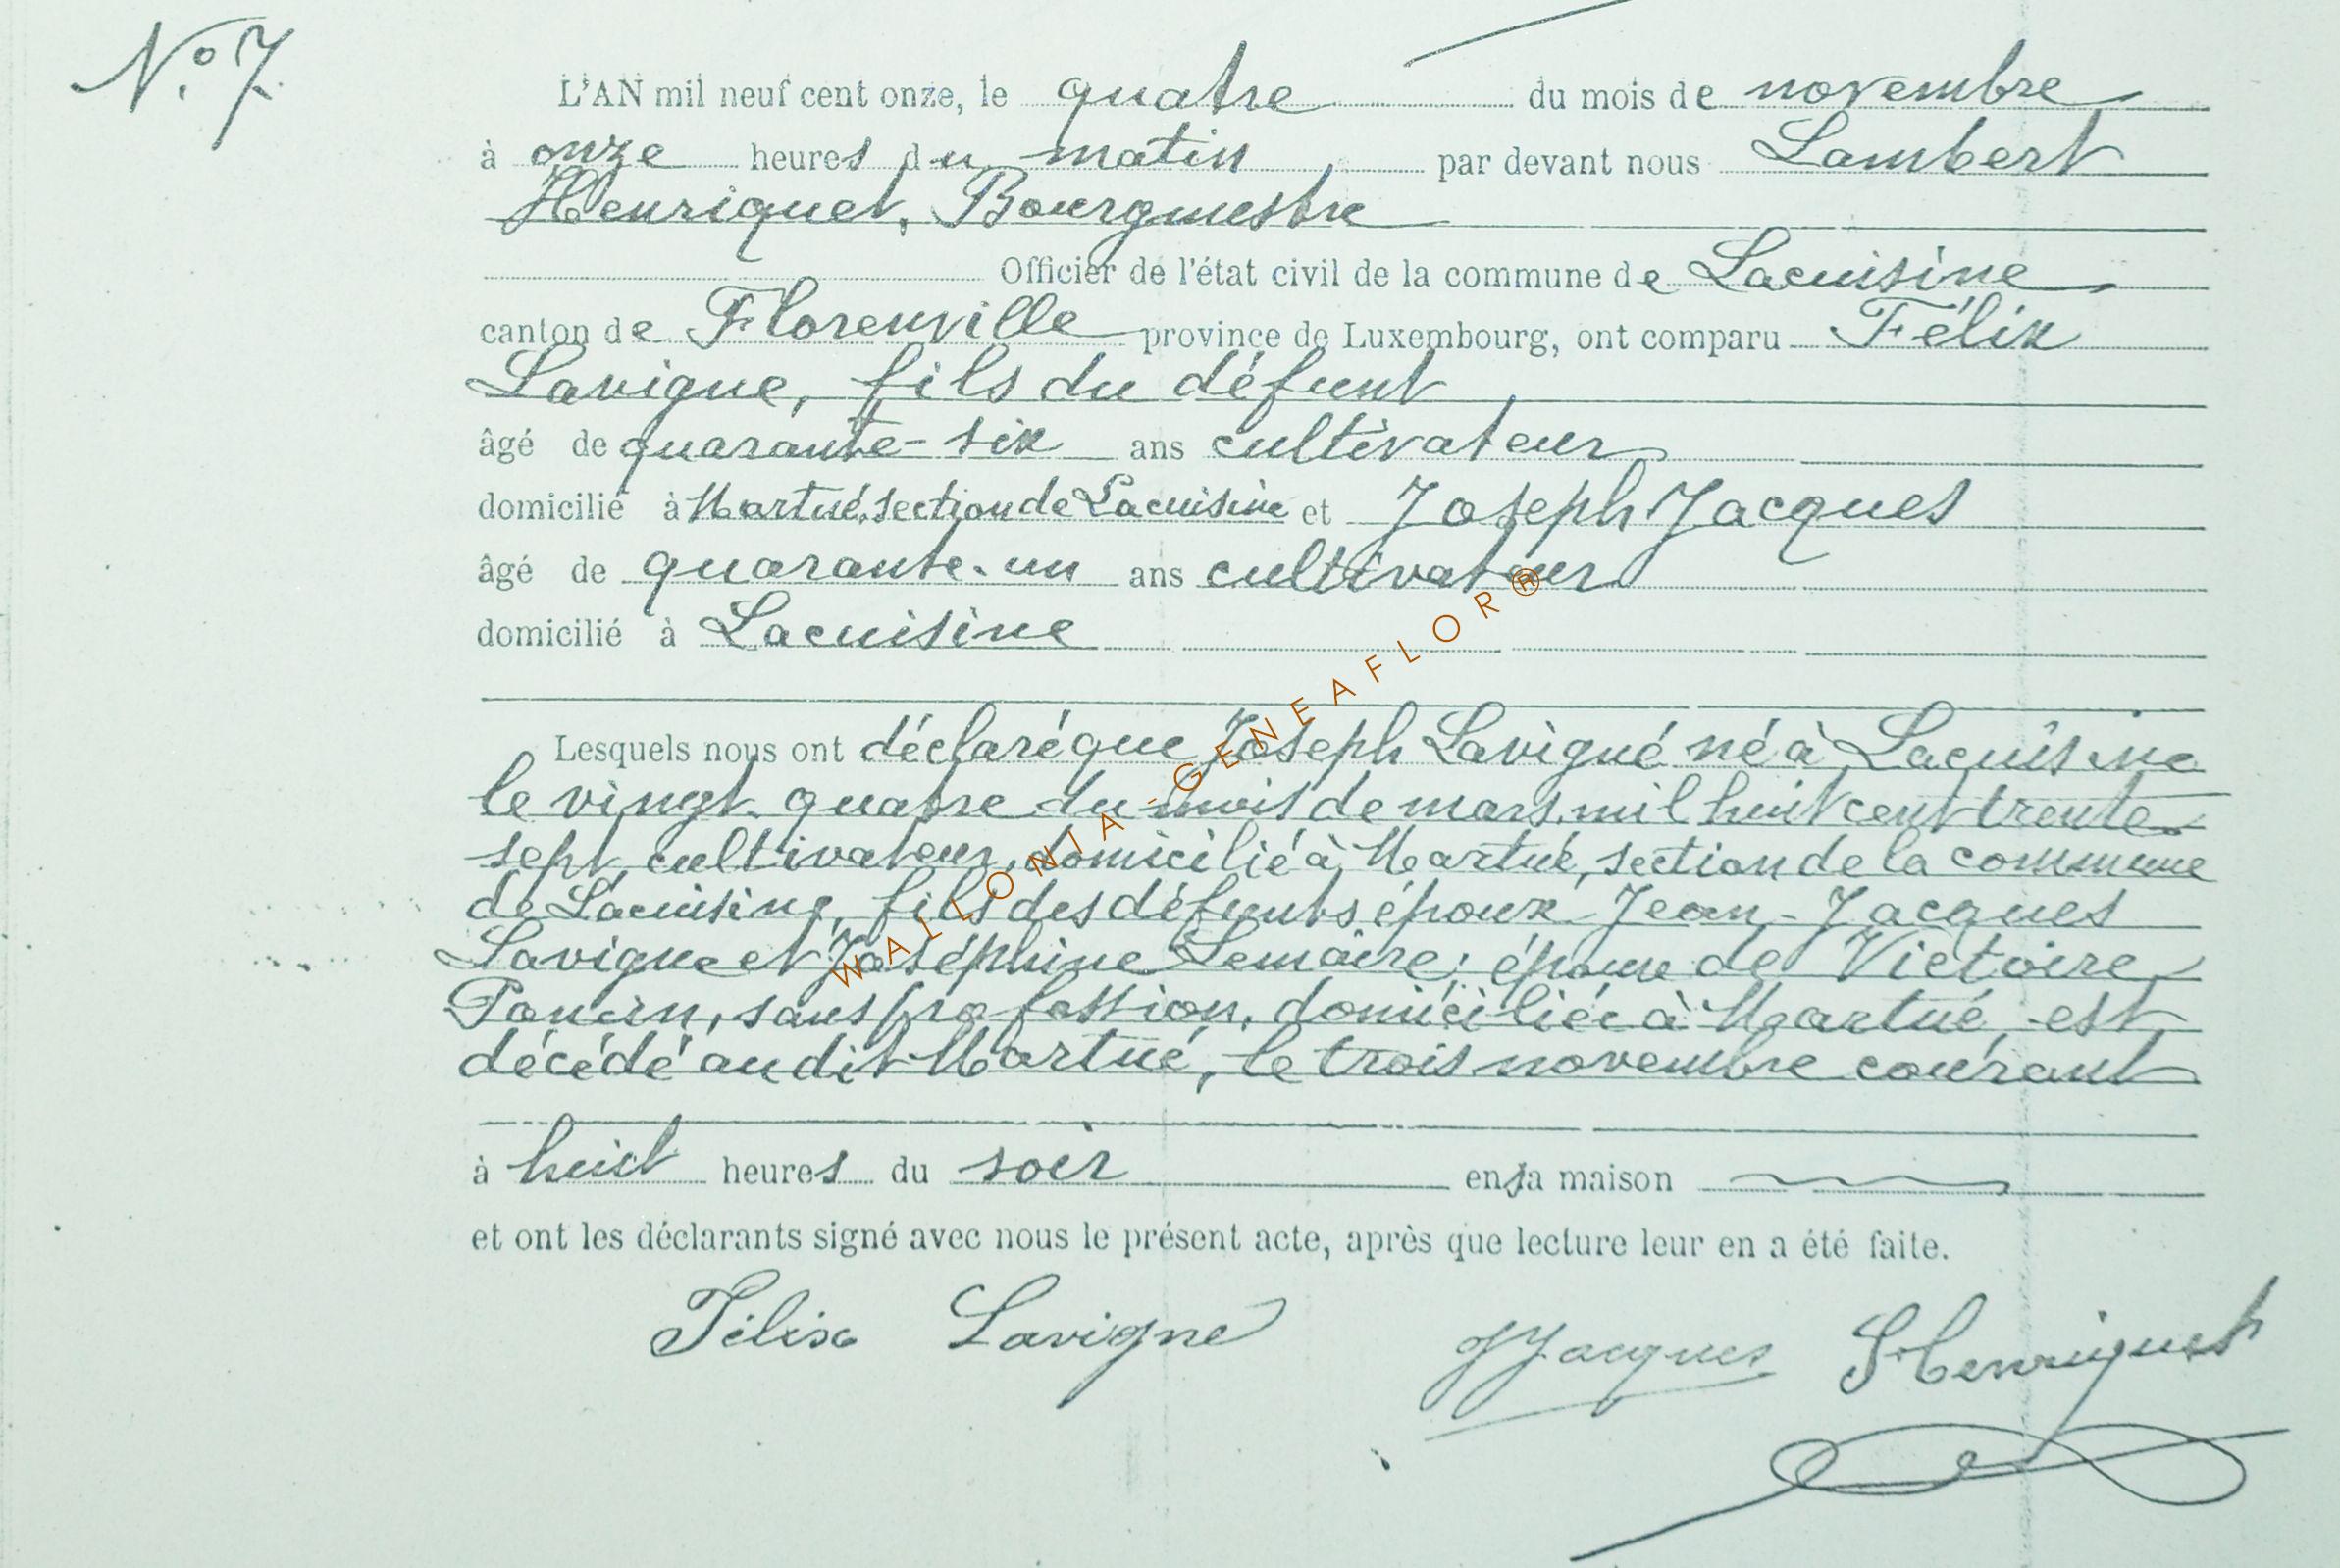 N° 7.
L'AN mil neuf cent onze, le quatre du mois de novembre
à onze heures du matin par devant nous Lambert
Henriquet, Bourgmestre
Officier de l'état civil de la commune de Lacuisine
canton de Florenville province de Luxembourg, ont comparu Félix
Lavigne, fils du défunt
âgé de quarante-six ans cultivateur
domicilié à Martué, section de Lacuisine et Joseph Jacques
âgé de quarante-un ans cultivateur
domicilié à Lacuisine
Lesquels nous ont déclaré que Joseph Lavigne né à Lacuisine
le vingt-quatre du mois de mars mil huit cent trente-
sept, cultivateur, domicilié à Martué, section de la commune
de Lacuisine, fils des défunts époux Jean-Jacques
Lavigne et Joséphine Lemaire; époux de Victoire
sans profession, domiciliée à Martué, est
décédé audit Martué, le trois novembre courant
à huit heures du soir en sa maison
et ont les déclarants signé avec nous le présent acte, après que lecture leur en a été faite.
Félix Lavigne JJacques LHenriquet
WALLONIA - GENEAFLOR®